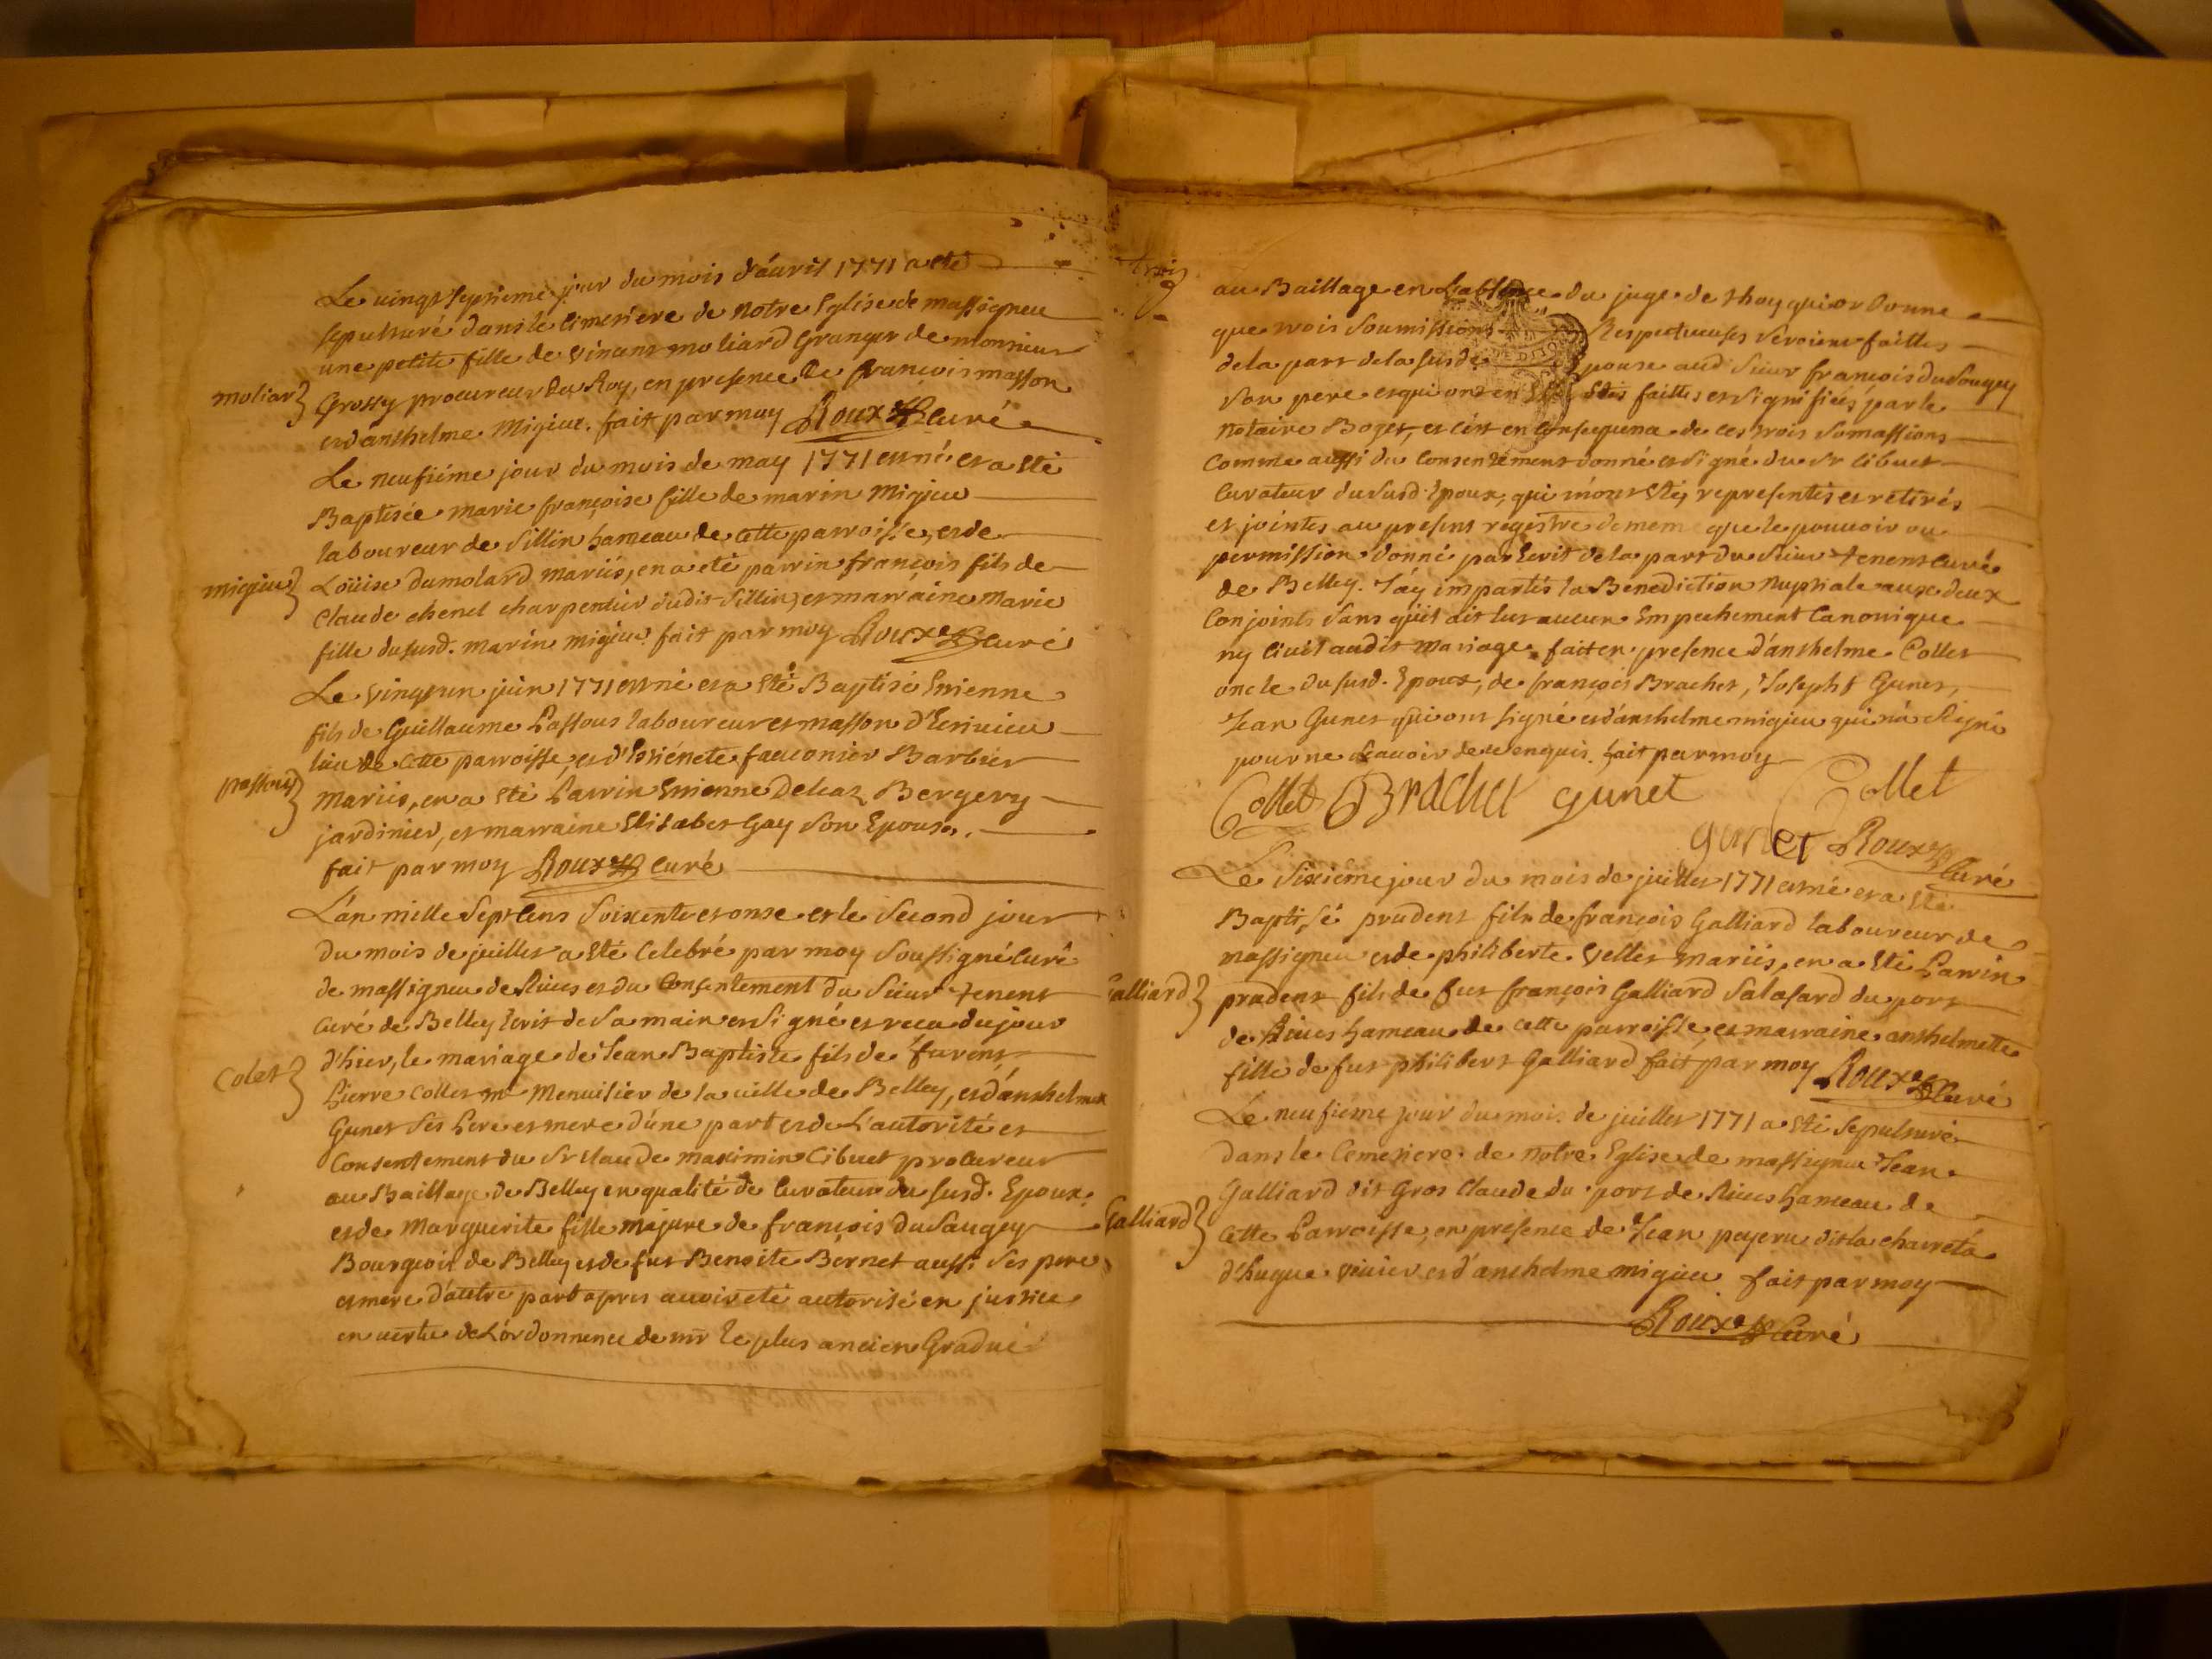 Le vingt septieme jour du mois d'auril 1771 a eté
sepulturé dans le cimetiere de notre Eglise de massigneu
une petite fille de vincent moliard Granger de monsieur
moliard
Grossy procureur du Roy, en presence de françois masson
et d'anthelme migieu. fait par moy Roux curé
Le neufiéme jour du mois de may 1771 est né et a eté
Baptisée marie françoise fille de marin migieu
laboureur de sillin hameau de cette parroisse, et de
migieu
Loüise dumolard mariés, en a eté parrin françois fils de
Claude chenel charpentier dudit sillin, et marraine marie
fille du susd. marin migieu. fait par moy Roux curé
Le vingt un juin 1771 est né et a eté Baptisé Etienne
fils de Guillaume Passous laboureur et masson d'Ecrivieu
lieu de cette parroisse, et d' fauconier Barbier
passous
mariés, en a eté Parrin Etienne Delcaz Bergery
jardinier, et marraine Elisabet Gay son Epouse.
fait par moy Roux curé
L'an mille sept cens soixente et onse et le second jour
du mois de juillet a eté celebré par moy soussigné curé
de massigneu de Rives et du consentement du sieur tenent
curé de Belley écrit de sa main et signé et receu du jour
d'hier, le mariage de Jean Baptiste fils de furent
Colet
Pierre collet mt menuisier de la ville de Belley, et d'anthelmette
Gunet ses Pere et mere d'une part et de L'autorité et
consentement du Sr claude maximin Cibuet procureur
au Baillage de Belley en qualité de curateur du susd. Epoux.
et de marguerite fille majure de françois du Saugey
Bourgeois de Belley et de fut Benoite Bernet aussi ses pere
et mere d'autre part apres avoir eté autorisé en justice
en vertu de L'ordonnence de mr le plus ancien Gradué
au Baillage en L'absence du juge de thoy qui ordonne
que trois soumissions Respectueuses seroient faittes
de la part de la susde Epouse aud sieur françois du Sougey
son pere et qui ont en eté faittes et signifiées par le
notaire Boget, et c'est en consequence de ces trois somassions
comme aussi du consentement donné et signé du Sr Cibuet
curateur du susd. Epoux, qui m'ont etés representés et retirés
et jointes au present régistre de meme que le pouvoir ou
permission donné par Ecrit de la part du sieur tenent curé
de Belley. J'ay impartis la Benediction nuptiale aux deux
conjoints sans qu'il ait eut aucun Empechement canonique
ny civil audit mariage fait en presence d'anthelme Collet
oncle du susd. Epoux, de françois Brachet, Joseph Gunet,
Jean Gunet qui ont signé et d'anthelme migieu qui n'a signé
pour ne sçavoir de ce enquis. fait par moy
Collet Brachet gunet Collet
gunet Roux curé
Le Sixiéme jour du mois de juillet 1771 est né et a eté
Baptisé prudent fils de françois Galliard laboureur de
massigneu et de philiberte vellet mariés, en a eté Parrin
Galliard
prudent fils de fut françois Galliard Salafard du port
de Rives hameau de cette parroisse, et marraine anthelmette
fille de fut philibert Galliard fait par moy Roux curé
Le neufiéme jour du mois de juillet 1771 a eté sepulturé
dans le cemetiere de notre Eglise de massigneu Jean
Galliard dit Gros claude du port de Rives hameau de
Galliard
cette Parroisse, en presence de Jean peyeru dit la charreta
d'hugue vivier et d'anthelme migieu fait par moy
Roux curé